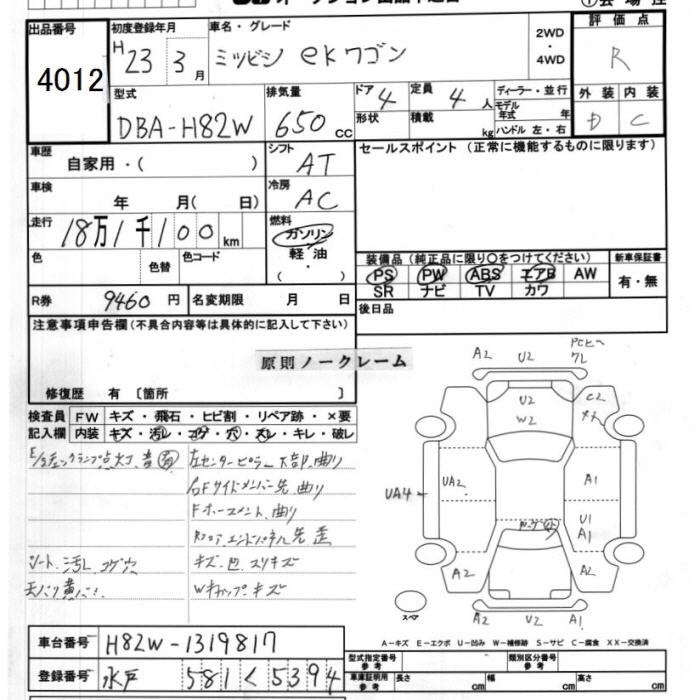 出品番号
4012
初度登録年月
H 23 3 月
車名・グレード
ミツビシ ekワゴン
2WD
・
4WD
評価点
R
外装 内装
D C
型式
DBA-H82W
排気量
650 cc
ドア 4
定員 4 人
形状
積載 kg
ディーラー・並行
モデル年式 年
ハンドル 左・右
車歴
自家用・( )
シフト
AT
セールスポイント (正常に機能するものに限ります)
車検
年 月( 日)
冷房
AC
走行
18万1千100km
燃料
ガソリン
軽油
・
( )
色
色替
色コード
装備品(純正品に限り○をつけてください)
新車保証書
PS PW ABS エアB AW
SR ナビ TV カワ
有・無
R券 9460 円
名変期限 月 日
後日品
注意事項申告欄(不具合内容等は具体的に記入して下さい)
原則ノークレーム
修復歴 有 〔箇所 〕
検査員 FW キズ・飛石・ヒビ割・リペア跡・×要
記入欄 内装 キズ・汚レ・コゲ・穴・スレ・キレ・破レ
E/gチェックランプ点灯
左センターピラー下部曲り
右Fサイドメンバー先曲り
Fホースメント曲り
先歪
シート汚レ コゲ穴
キズ 凹 スリキズ
Wキャップキズ
A2 U2
U2
W2
C2
UA4
UA2
A1
U1
A1
A2
A2
A2 U2 A1
スペア
A-キズ E-エクボ U-凹み W-補修跡 S-サビ C-腐食 XX-交換済
車台番号 H82W-1319817
登録番号 水戸 581 く 5394
型式指定番号 参考
類別区分番号 参考
車庫証明用 参考 長さ cm 幅 cm 高さ cm